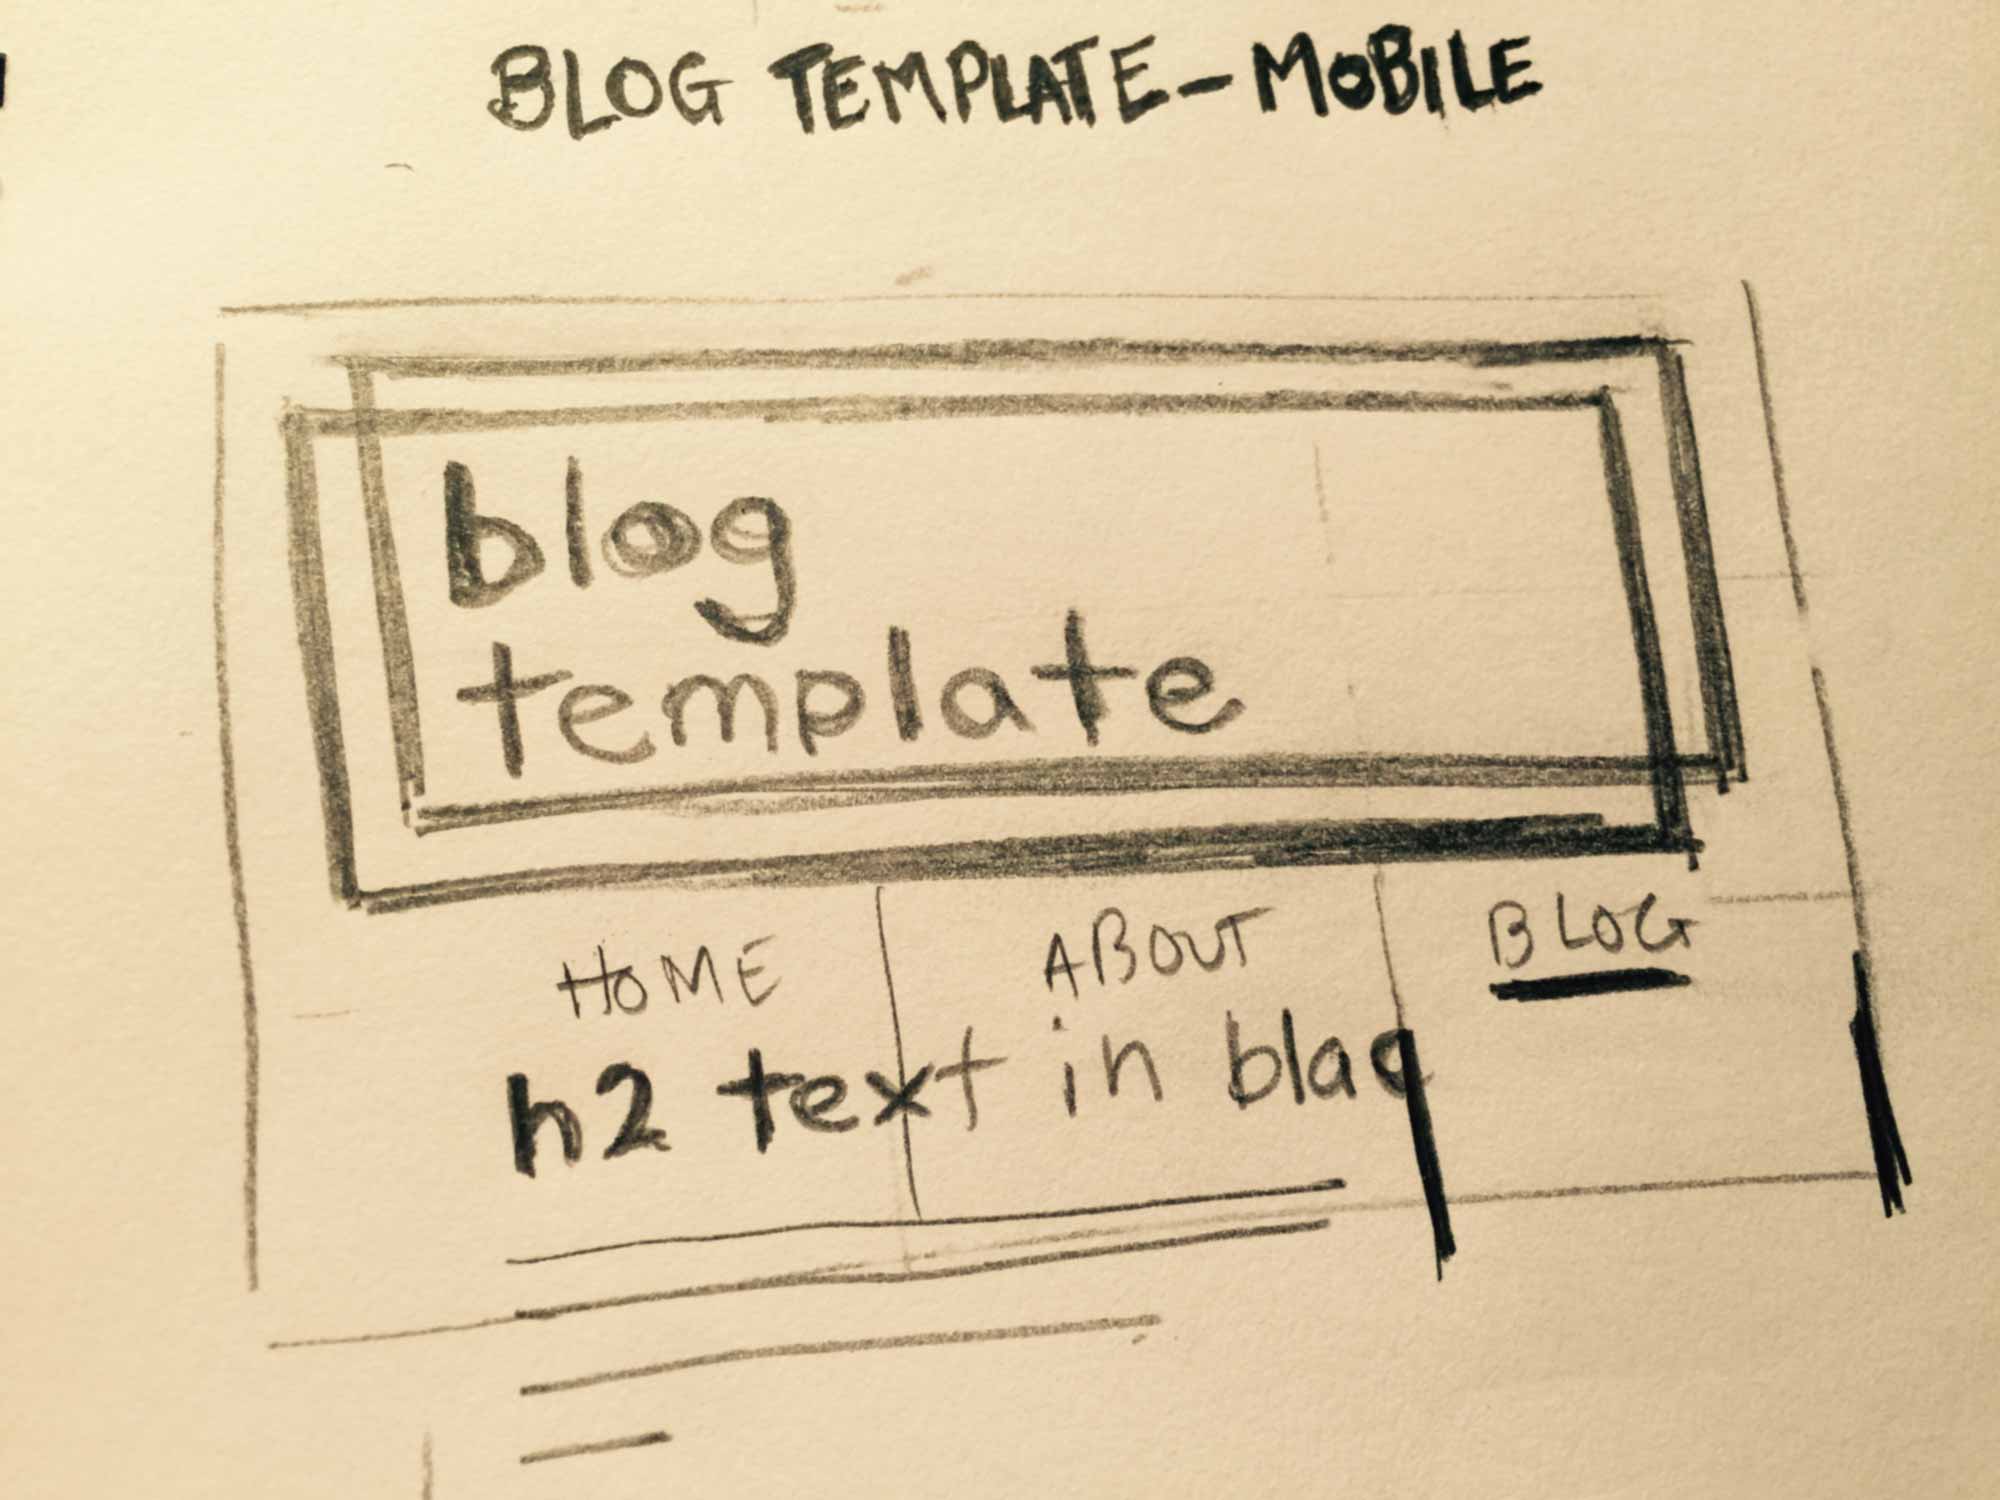 BLOG TEMPLATE-MOBILE
blog
template
HOME ABOUT BLOG
h2 text in blac